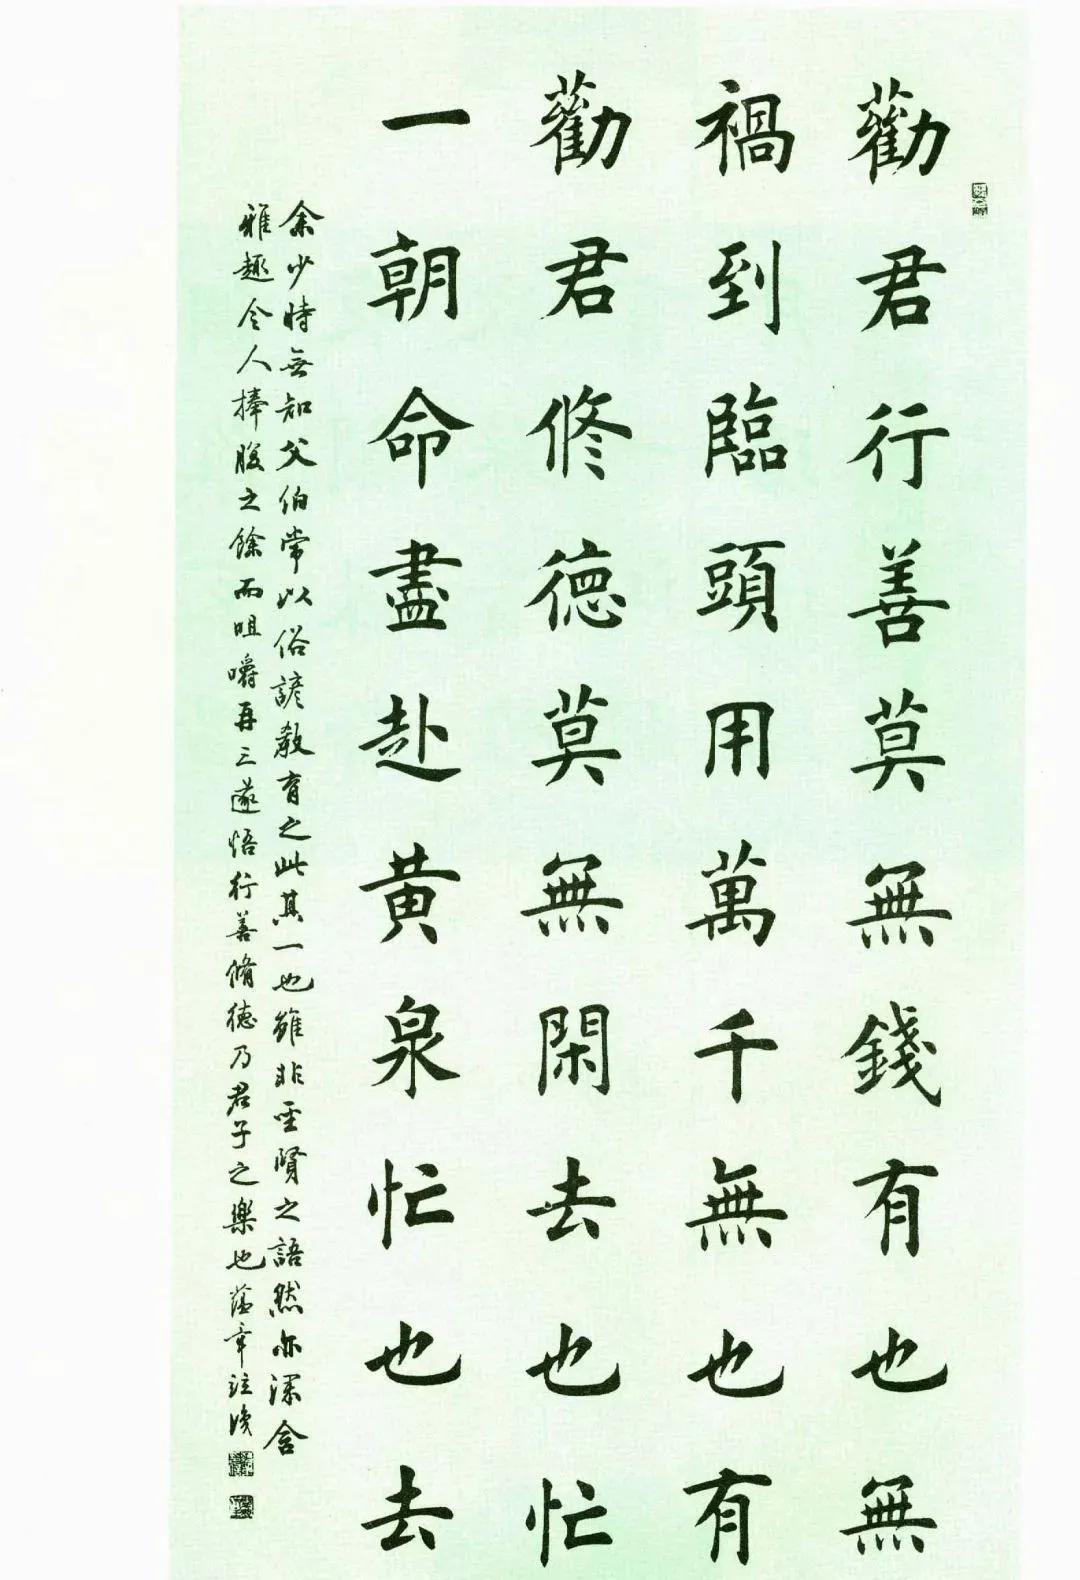 勸君行善莫無錢有也無
禍到臨頭用萬千無也有
勸君修德莫無閑去也忙
一朝命盡赴黃泉忙也去
余少時無知父伯常以俗諺教育之此其一也雖非聖賢之語然亦深含
雅趣令人捧腹之餘而咀嚼再三遂悟行善脩德乃君子之樂也蔭章